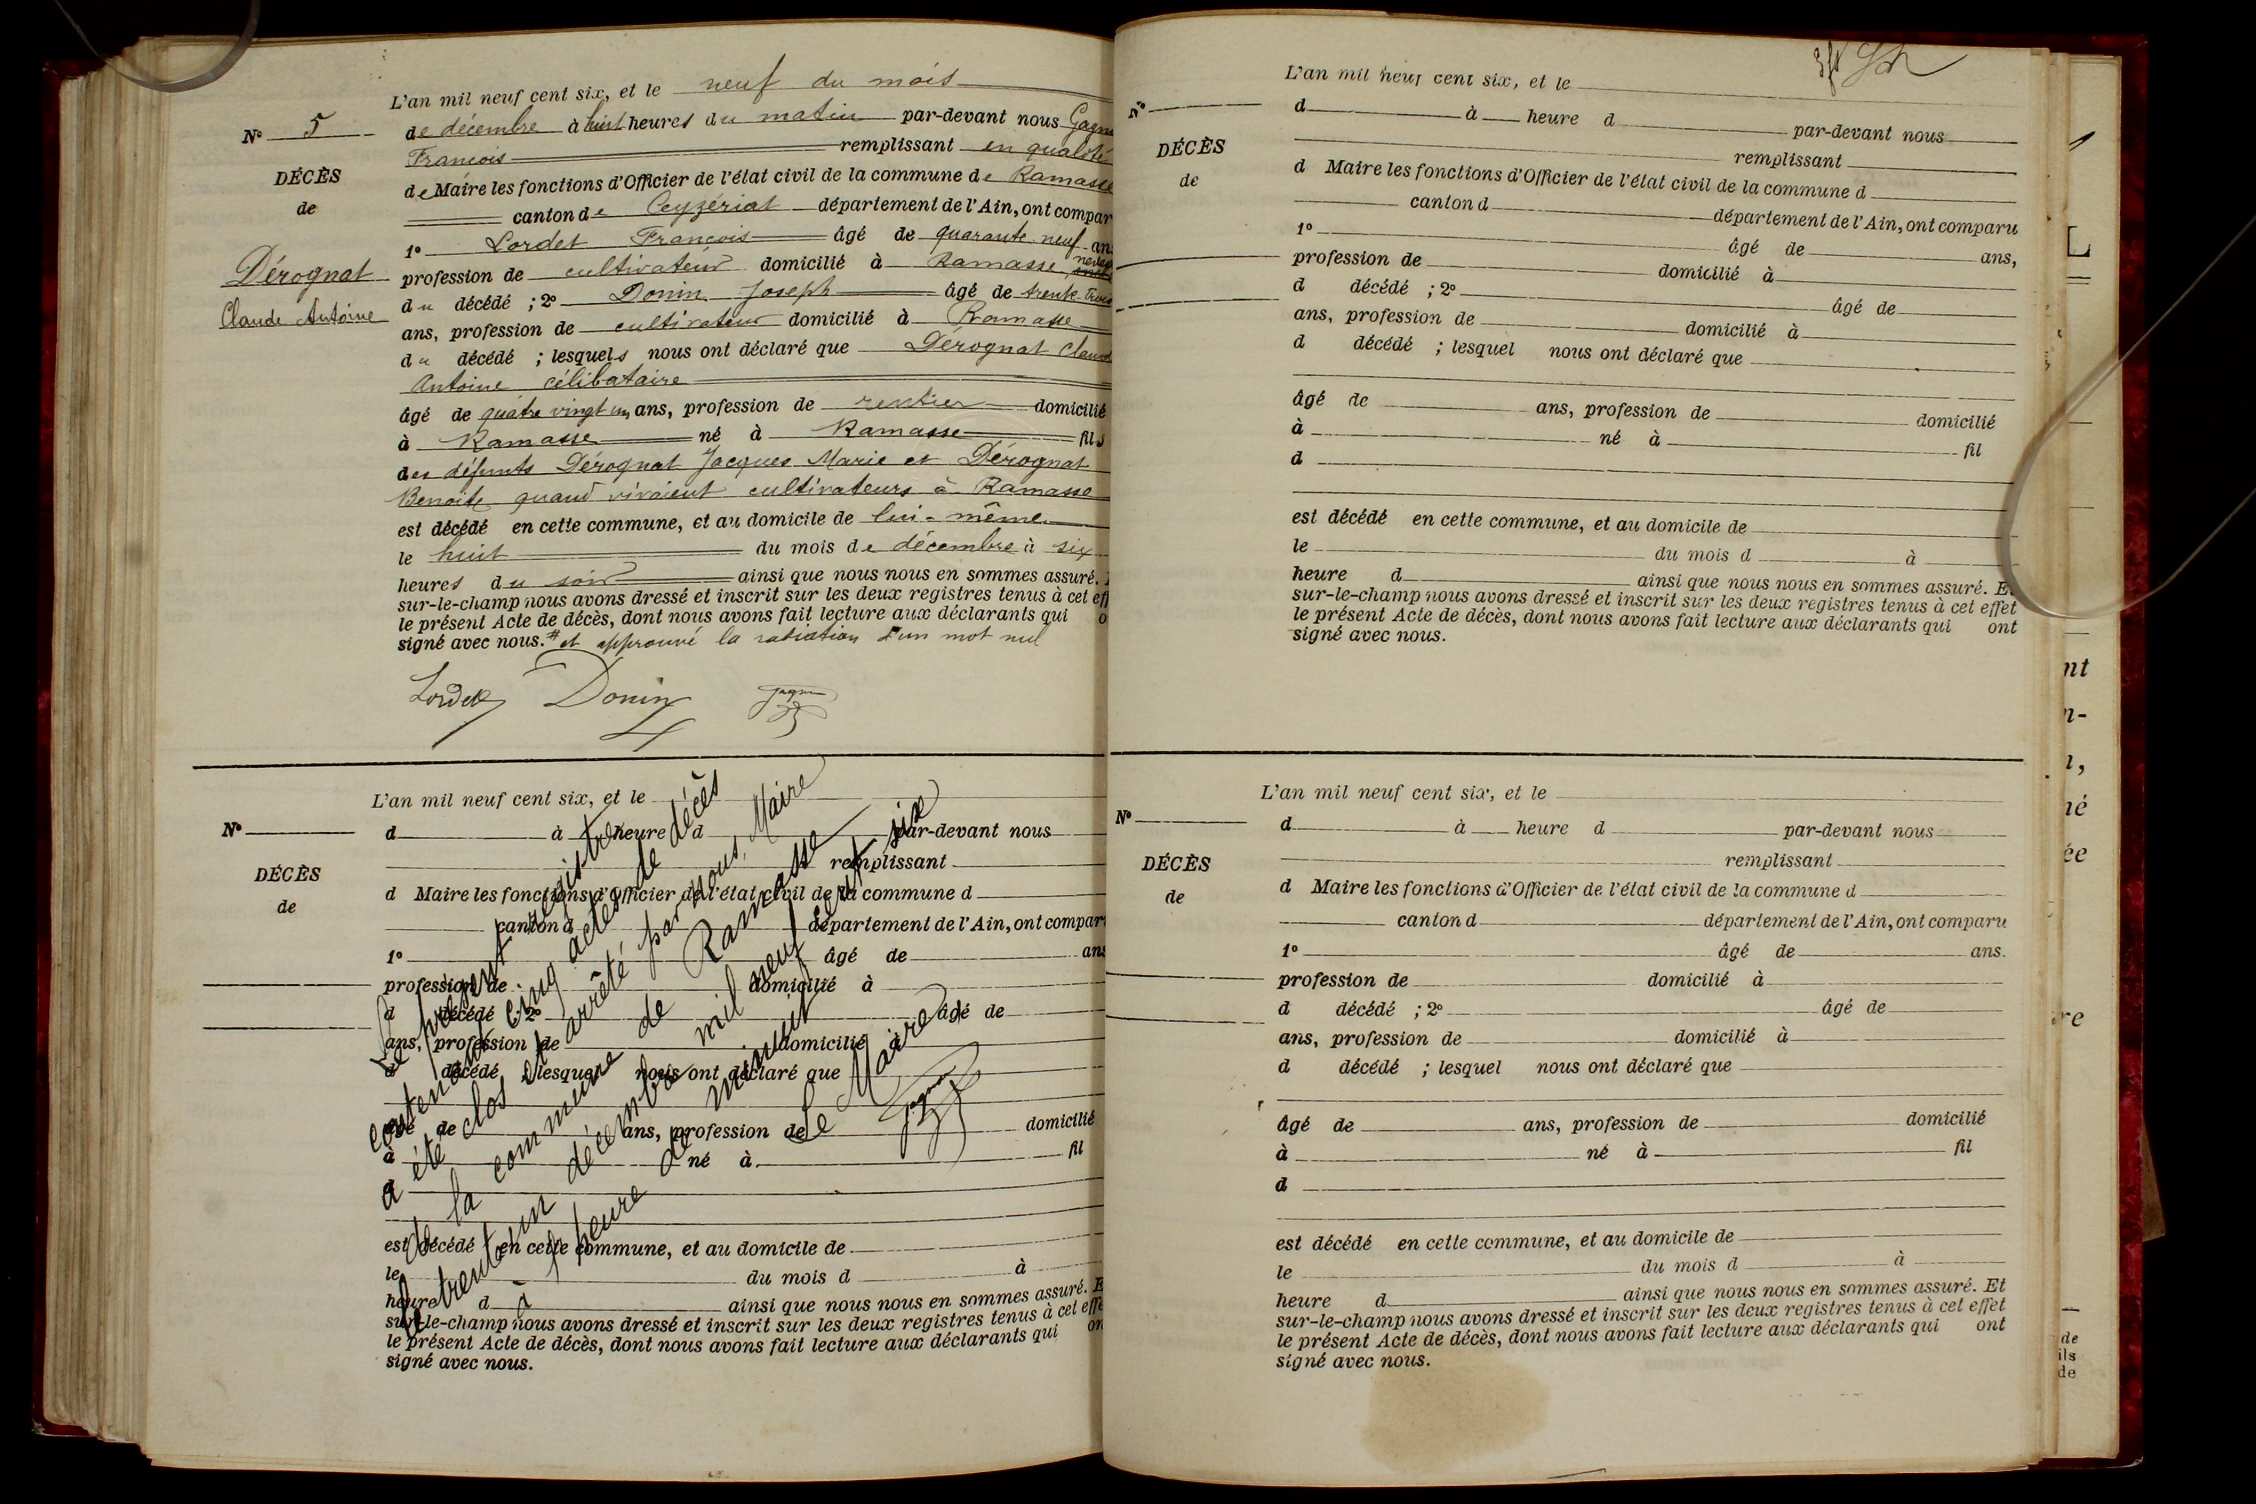 L'an mil neuf cent six, et le neuf du mois
N° 5
de décembre à huit heures du matin par-devant nous Gagn
François remplissant en qualité
DÉCÈS
de Maire les fonctions d'Officier de l'état civil de la commune de Ramasse
de
canton de Ceyzériat département de l'Ain, ont compar
1° Lordet François âgé de quarante neuf ans
Dérognat
profession de cultivateur domicilié à Ramasse, neveu
du décédé ; 2° Donin Joseph âgé de trente trois
Claude Antoine
ans, profession de cultivateur domicilié à Ramasse
du décédé ; lesquels nous ont déclaré que Dérognat Claud
Antoine célibataire
âgé de quatre vingt un ans, profession de rentier domicilié
à Ramasse né à Ramasse fils
des défunts Dérognat Jacques Marie et Dérognat
Benoite quand vivaient cultivateurs à Ramasse
est décédé en cette commune, et au domicile de lui-même
le huit du mois de décembre à six
heures du soir ainsi que nous nous en sommes assuré.
sur-le-champ nous avons dressé et inscrit sur les deux registres tenus à cet eff
le présent Acte de décès, dont nous avons fait lecture aux déclarants qui o
signé avec nous. # et approuvé la radiation d'un mot nul
Lordet Donin Gagne
L'an mil neuf cent six, et le
N°
d à heure d par-devant nous
remplissant
DÉCÈS
d Maire les fonctions d'Officier de l'état civil de la commune d
de
canton d département de l'Ain, ont compar
1° âgé de ans
profession de domicilié à
d décédé ; 2° âgé de
ans, profession de domicilié à
d décédé ; lesquel nous ont déclaré que
âgé de ans, profession de domicilié
à né à fil
d
est décédé en cette commune, et au domicile de
le du mois d à
heure d ainsi que nous nous en sommes assuré. E
sur-le-champ nous avons dressé et inscrit sur les deux registres tenus à cet effe
le présent Acte de décès, dont nous avons fait lecture aux déclarants qui on
signé avec nous.
Le présent registre
contenant cinq actes de décès
a été clos et arrêté par nous, Maire
de la commune de Ramasse
le trente un décembre mil neuf cent six
à heure de minuit
Le Maire
L'an mil neuf cent six, et le
N°
d à heure d par-devant nous
remplissant
DÉCÈS
d Maire les fonctions d'Officier de l'état civil de la commune d
de
canton d département de l'Ain, ont comparu
1° âgé de ans,
profession de domicilié à
d décédé ; 2° âgé de
ans, profession de domicilié à
d décédé ; lesquel nous ont déclaré que
âgé de ans, profession de domicilié
à né à fil
d
est décédé en cette commune, et au domicile de
le du mois d à
heure d ainsi que nous nous en sommes assuré. Et
sur-le-champ nous avons dressé et inscrit sur les deux registres tenus à cet effet
le présent Acte de décès, dont nous avons fait lecture aux déclarants qui ont
signé avec nous.
L'an mil neuf cent six, et le
N°
d à heure d par-devant nous
remplissant
DÉCÈS
d Maire les fonctions d'Officier de l'état civil de la commune d
de
canton d département de l'Ain, ont comparu
1° âgé de ans.
profession de domicilié à
d décédé ; 2° âgé de
ans, profession de domicilié à
d décédé ; lesquel nous ont déclaré que
âgé de ans, profession de domicilié
à né à fil
d
est décédé en cette commune, et au domicile de
le du mois d à
heure d ainsi que nous nous en sommes assuré. Et
sur-le-champ nous avons dressé et inscrit sur les deux registres tenus à cet effet
le présent Acte de décès, dont nous avons fait lecture aux déclarants qui ont
signé avec nous.